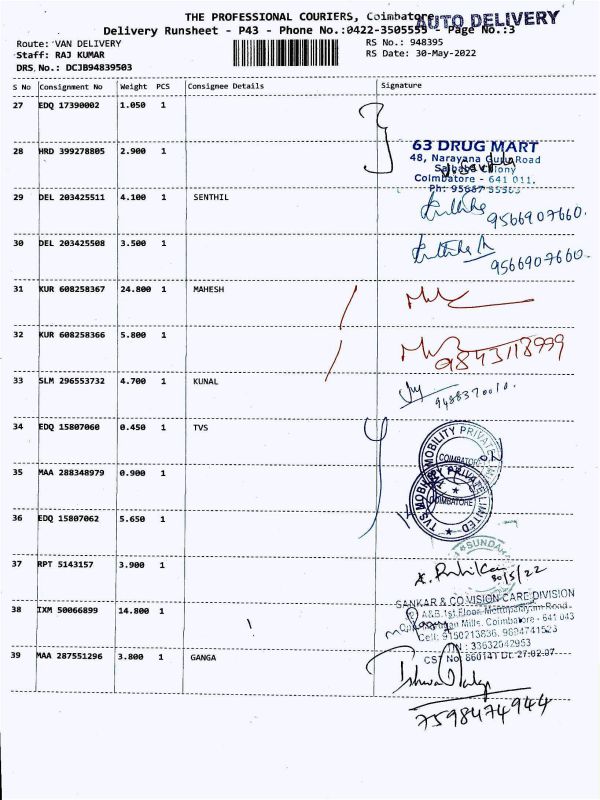 THE PROFESSIONAL COURIERS, Coimbatore
AUTO DELIVERY
Delivery Runsheet - P43 - Phone No.:0422-3505555 - Page No.:3
Route: VAN DELIVERY RS No.: 948395
Staff: RAJ KUMAR RS Date: 30-May-2022
DRS No.: DCJB94839503
S No Consignment No Weight PCS Consignee Details Signature
27 EDQ 17390002 1.050 1
28 HRD 399278805 2.900 1
63 DRUG MART
48, Narayana Guru Road
Saibaba Colony
Coimbatore - 641 011.
Ph: 95667 55563
29 DEL 203425511 4.100 1 SENTHIL
9566907660.
30 DEL 203425508 3.500 1
9566907660.
31 KUR 608258367 24.800 1 MAHESH
32 KUR 608258366 5.800 1
9843118999
33 SLM 296553732 4.700 1 KUNAL
9488370010.
34 EDQ 15807060 0.450 1 TVS
TVS MOBILITY PRIVATE LIMITED
COIMBATORE
35 MAA 288348979 0.900 1
TVS MOBILITY PRIVATE LIMITED
COIMBATORE
36 EDQ 15807062 5.650 1
37 RPT 5143157 3.900 1
30/5/22
38 IXM 50066899 14.800 1
SANKAR & CO VISION CARE DIVISION
A&B,1st Floor, Mettupalayam Road
Mills, Coimbatore - 641 043
Cell: 9150213836, 9894741523
TIN : 33632042953
CST No. 860141 Dt. 27.02.07
39 MAA 287551296 3.800 1 GANGA
7598474944